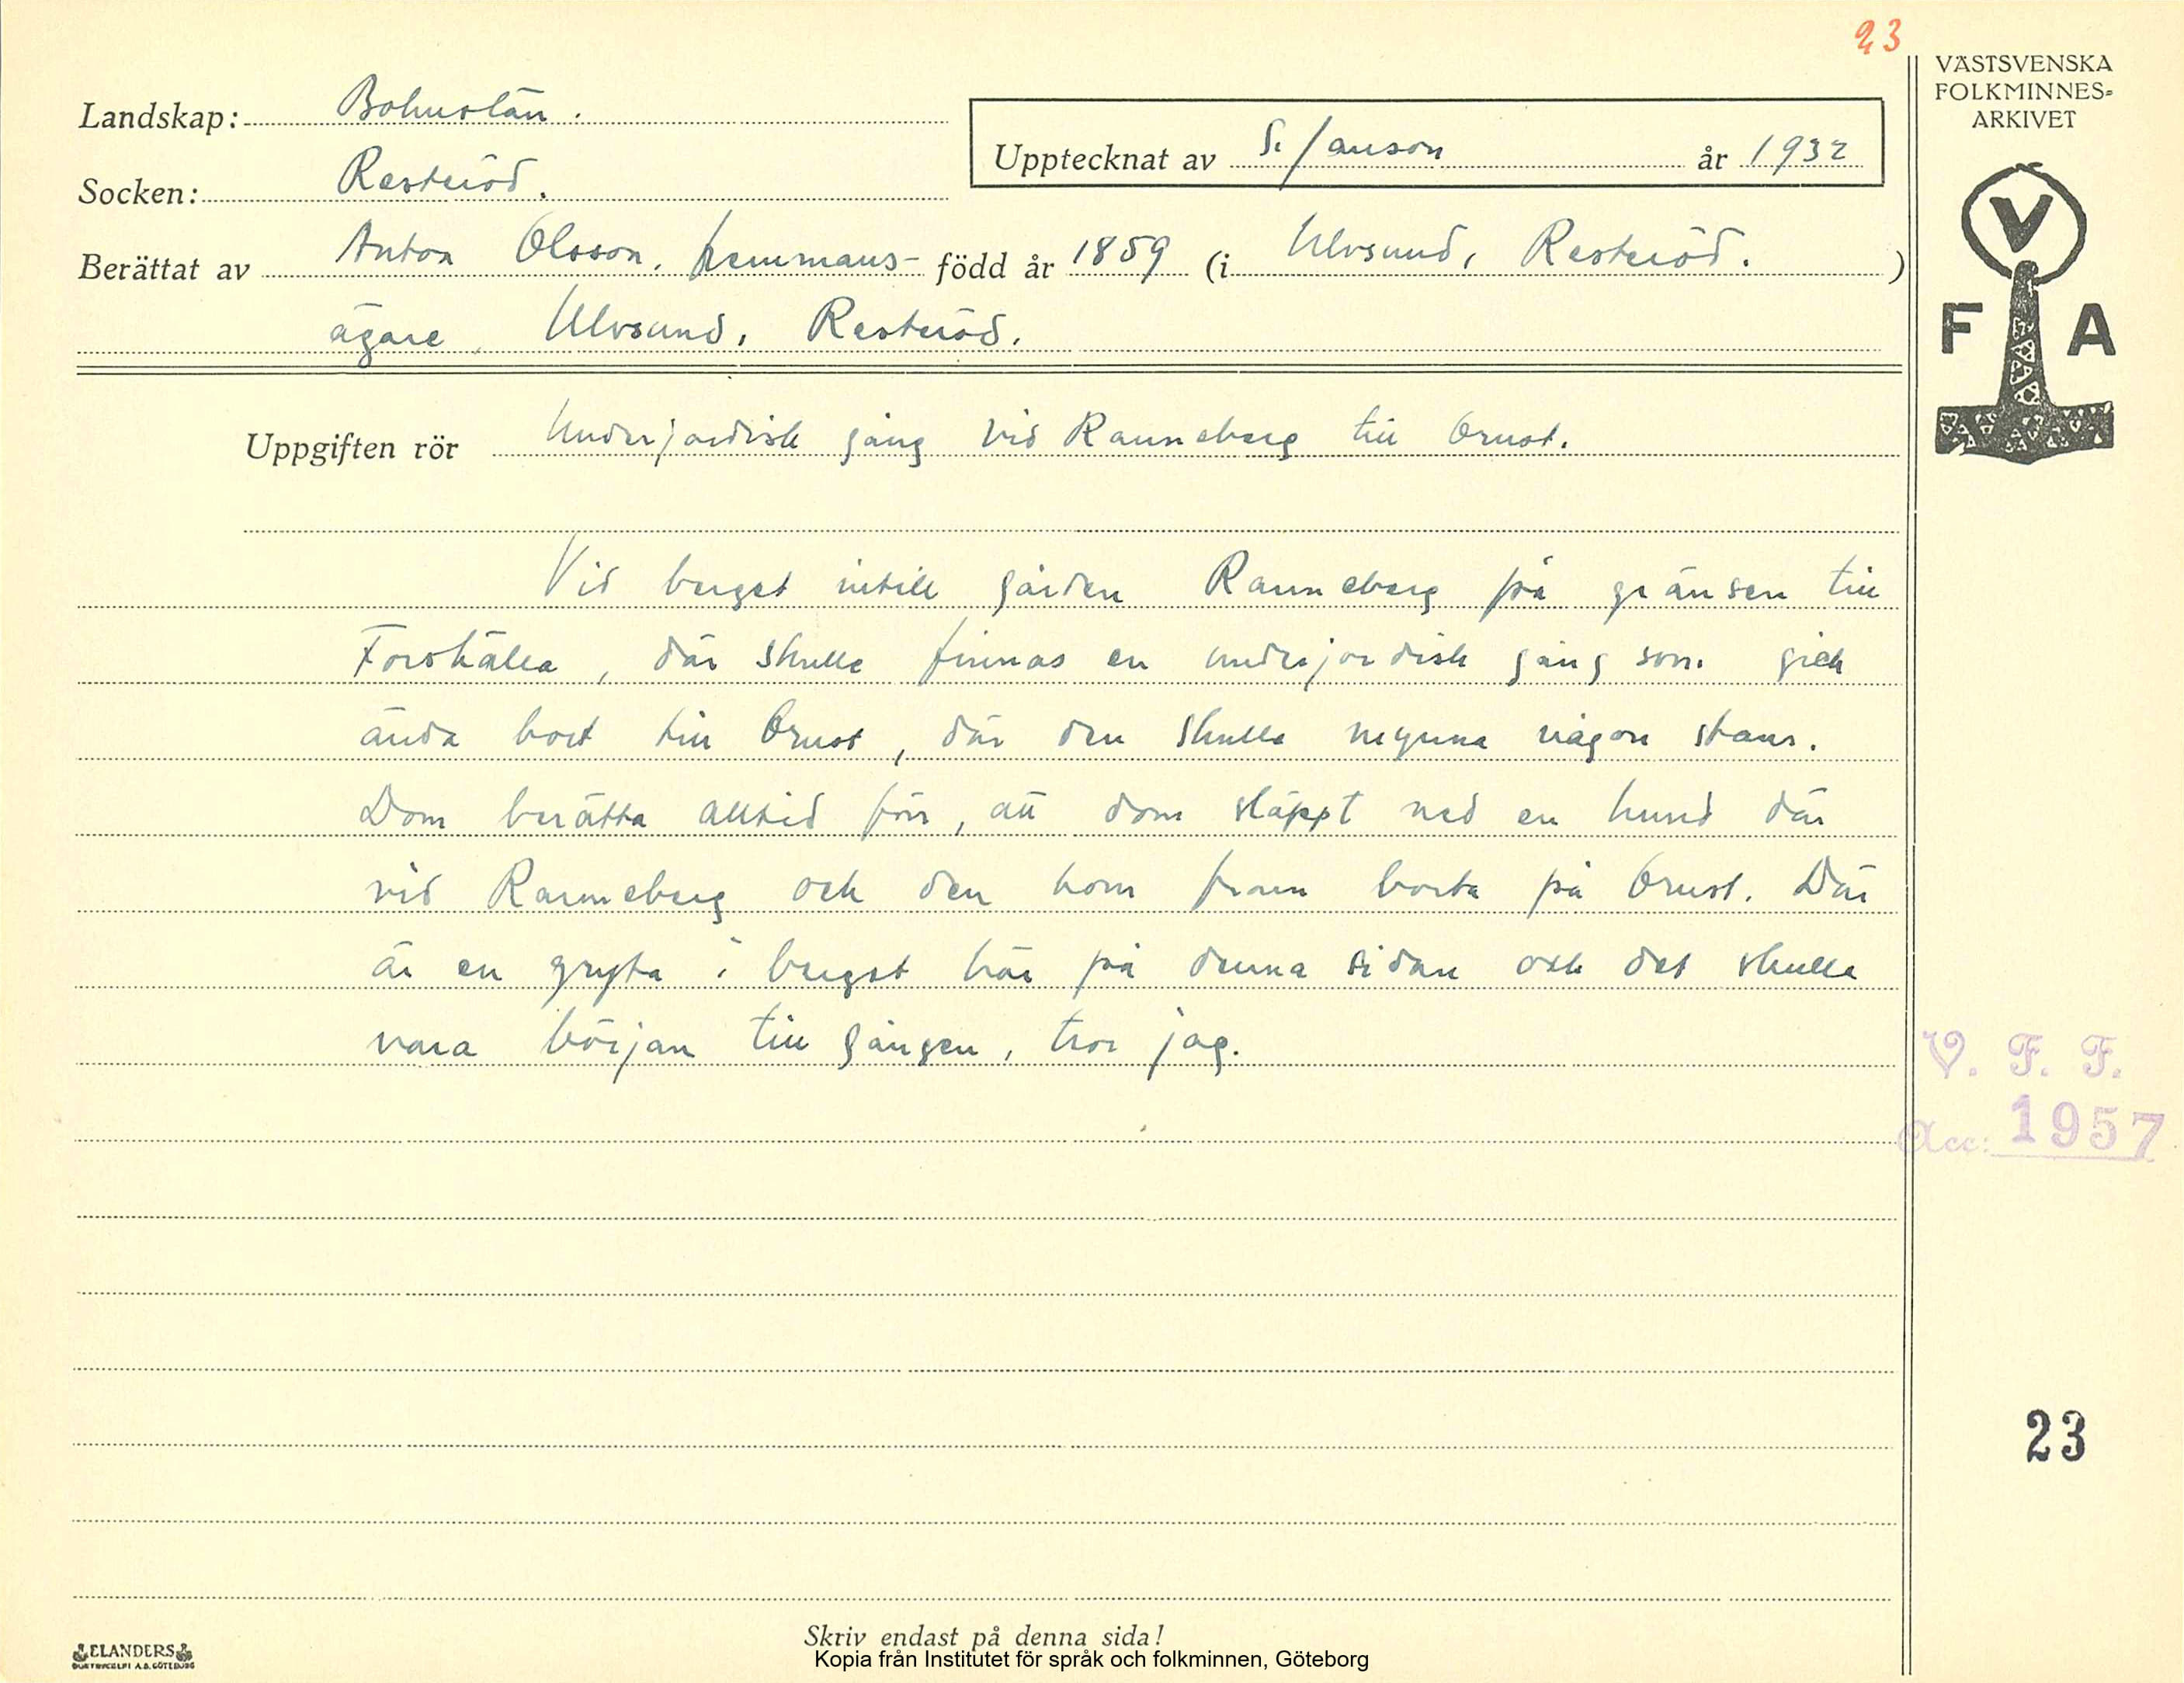 23
VÄSTSVENSKA
FOLKMINNES-
ARKIVET
Landskap: Bohuslän.
Upptecknat av S. Janson år 1932
Socken: Resteröd.
Berättat av Anton Olsson, hemmans- född år 1859 (i Ulvsund, Resteröd.)
ägare, Ulvsund, Resteröd.
V
F A
Uppgiften rör Underjordisk gång vid Ranneberg till Orust.
Vid berget intill gården Ranneberg på gränsen till
Forshälla, där skulle finnas en underjordisk gång som gick
ända bort till Orust, där den skulle mynna någon stans.
Dom berätta alltid förr, att dom släppt ned en hund där
vid Ranneberg och den kom fram borta på Orust. Där
är en gryta i berget här på denna sidan och det skulle
vara början till gången, tror jag.
V. F. F.
Acc: 1957
23
Skriv endast på denna sida!
ELANDERS
BOKTRYCKERI A.B. GÖTEBORG
Kopia från Institutet för språk och folkminnen, Göteborg